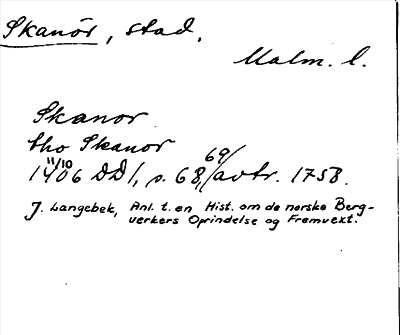 Skanör, stad,
Malm. l.
Skanor
tho Skanor
1406 11/10 DD1, s. 68, 69/ avtr. 1758.
J. Langebek, Anl. t. en Hist. om de norske Berg-
verkers Oprindelse og Fremvext.